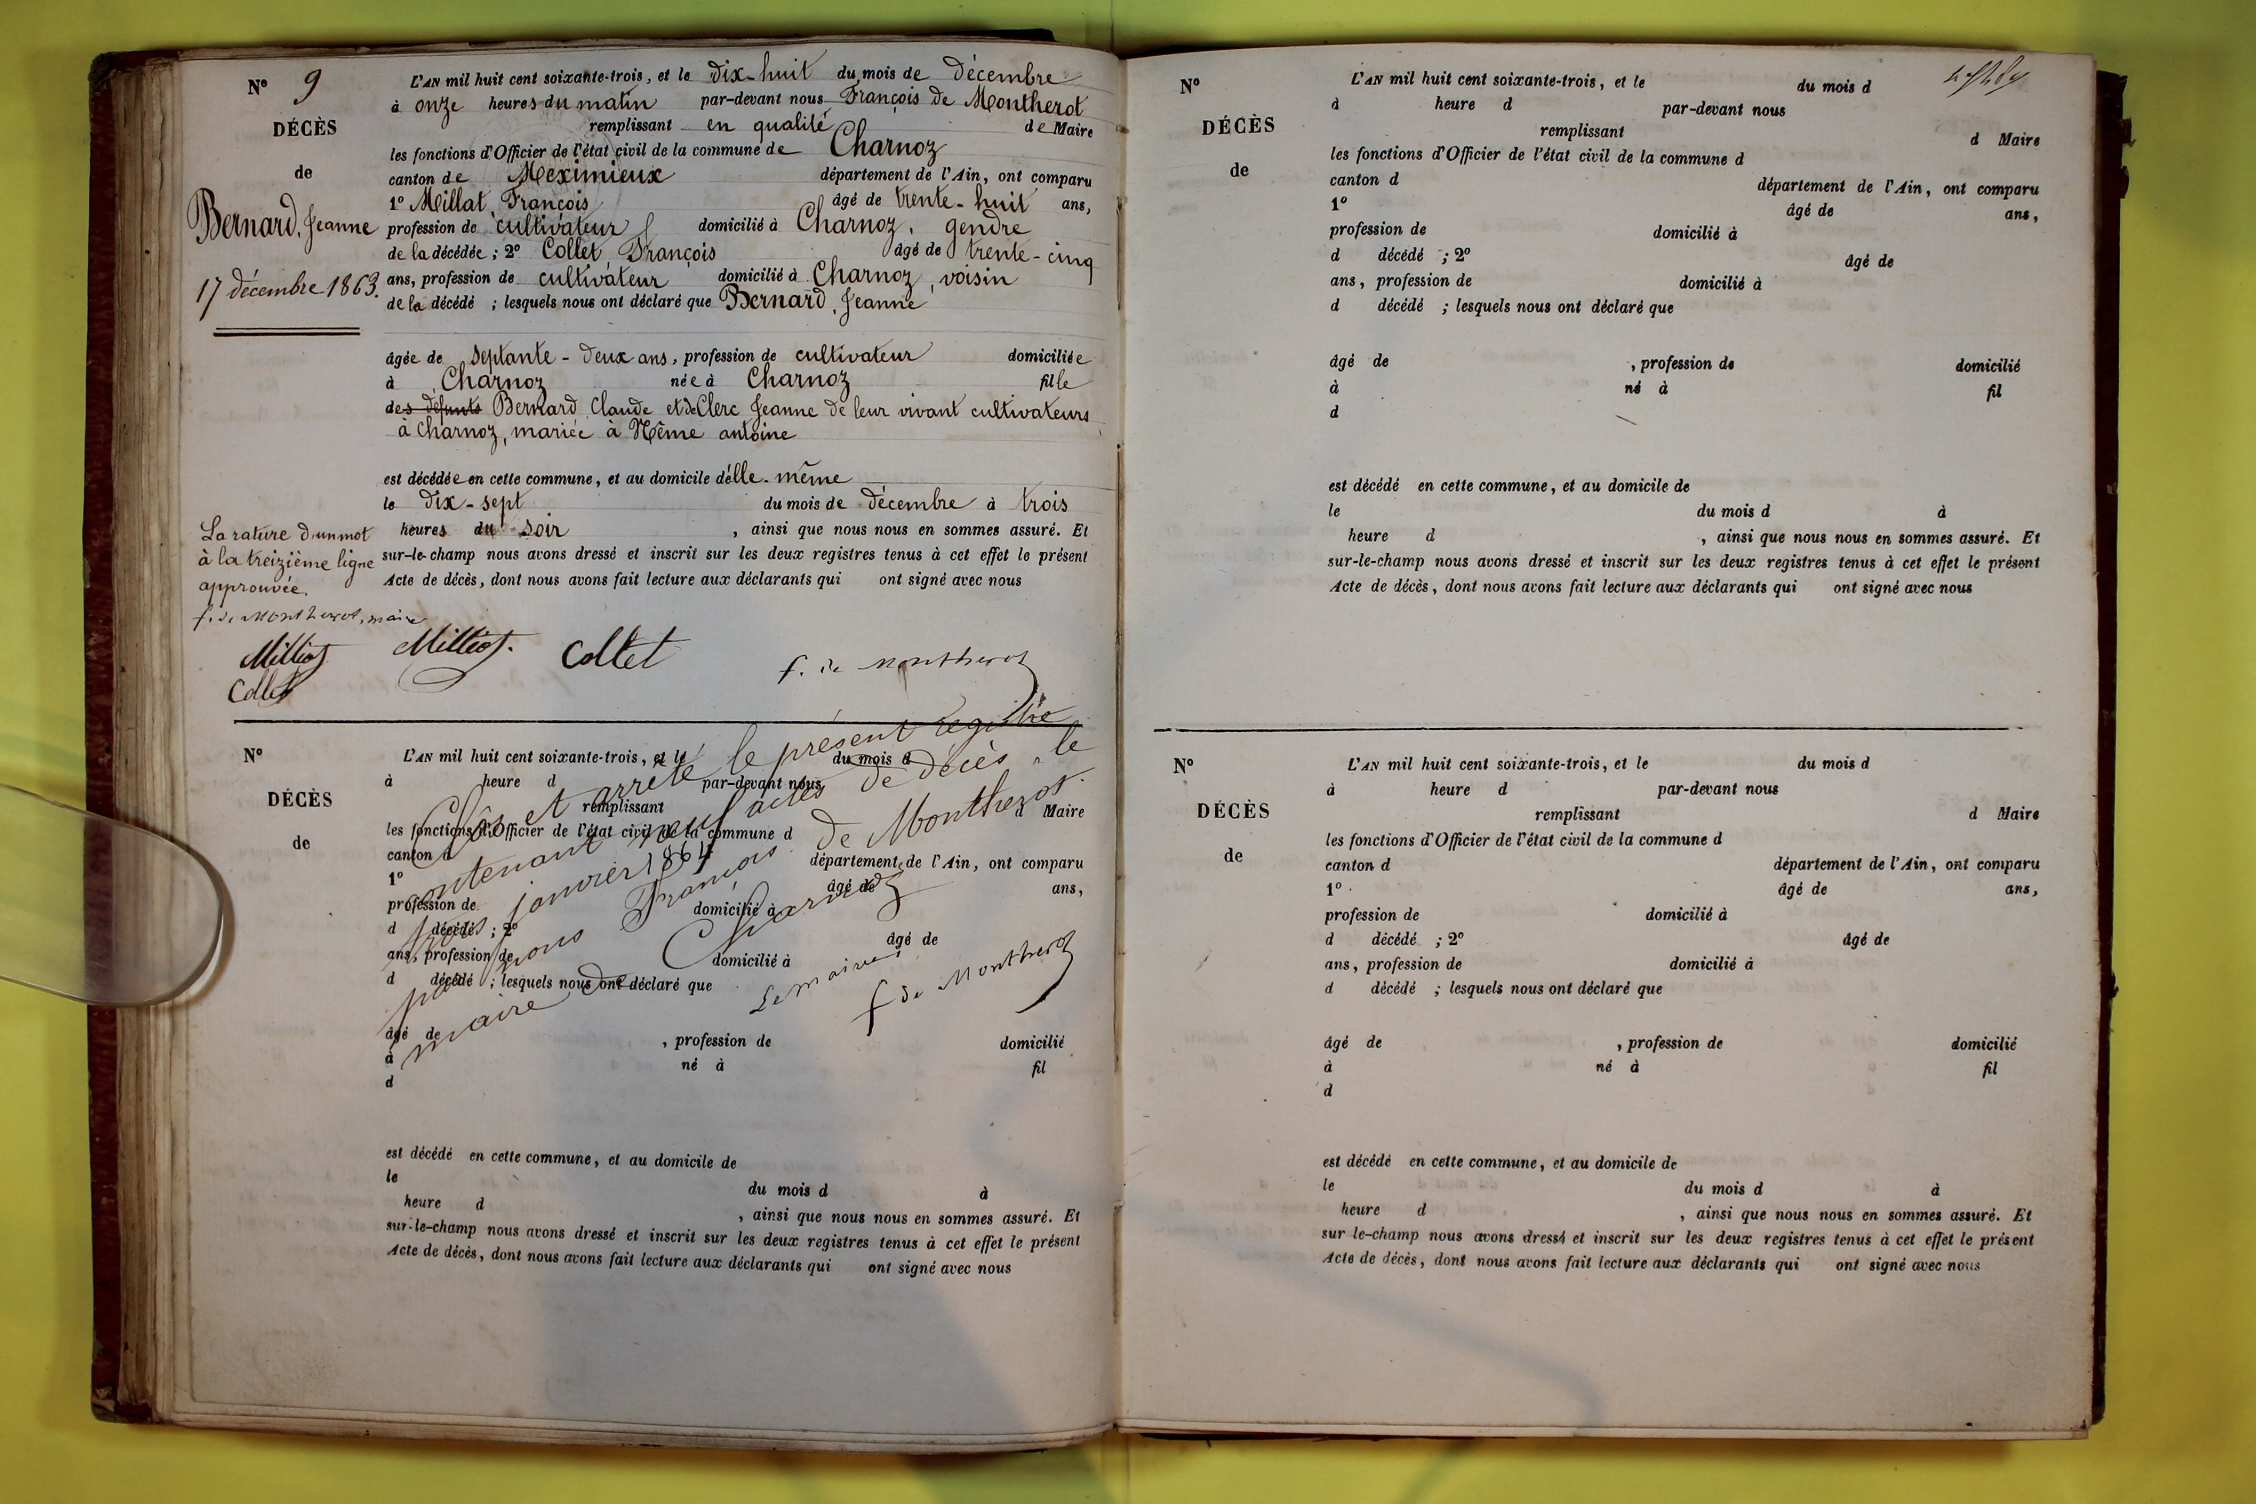 N° 9
DÉCÈS
de
Bernard, Jeanne
17 décembre 1863.
L'AN mil huit cent soixante-trois, et le dix-huit du mois de décembre
à onze heures du matin par-devant nous François de Montherot
remplissant en qualité de Maire
les fonctions d'Officier de l'état civil de la commune de Charnoz
canton de Meximieux département de l'Ain, ont comparu
1° Millat, François âgé de trente-huit ans,
profession de cultivateur domicilié à Charnoz, gendre
de la décédée ; 2° Collet, François âgé de trente-cinq
ans, profession de cultivateur domicilié à Charnoz, voisin
de la décédé ; lesquels nous ont déclaré que Bernard, Jeanne
âgée de septante-deux ans, profession de cultivateur domiciliée
à Charnoz née à Charnoz fille
des défunts Bernard, Claude et de Clerc Jeanne de leur vivant cultivateurs
à Charnoz, mariée à Même antoine
est décédée en cette commune, et au domicile d'elle-même
le dix-sept du mois de décembre à trois
heures du soir , ainsi que nous nous en sommes assuré. Et
sur-le-champ nous avons dressé et inscrit sur les deux registres tenus à cet effet le présent
Acte de décès, dont nous avons fait lecture aux déclarants qui ont signé avec nous
La rature d'un mot
à la treizième ligne
approuvée.
f. de Montherot, maire
Milliat Milliat. Collet f. de Montherot
Collet
N°
DÉCÈS
de
L'AN mil huit cent soixante-trois, et le du mois d
à heure d par-devant nous
remplissant d Maire
les fonctions d'Officier de l'état civil de la commune d
canton d département de l'Ain, ont comparu
1° âgé de ans,
profession de domicilié à
d décédé ; 2° âgé de
ans, profession de domicilié à
d décédé ; lesquels nous ont déclaré que
âgé de , profession de domicilié
à né à fil
d
est décédé en cette commune, et au domicile de
le du mois d à
heure d , ainsi que nous nous en sommes assuré. Et
sur-le-champ nous avons dressé et inscrit sur les deux registres tenus à cet effet le présent
Acte de décès, dont nous avons fait lecture aux déclarants qui ont signé avec nous
Clos et arrêté le présent registre
contenant neuf actes de décès, le
trois janvier 1864
par nous François de Montherot.
maire de Charnoz
Le maire
f de Montherot
N°
DÉCÈS
de
L'AN mil huit cent soixante-trois, et le du mois d
à heure d par-devant nous
remplissant d Maire
les fonctions d'Officier de l'état civil de la commune d
canton d département de l'Ain, ont comparu
1° âgé de ans,
profession de domicilié à
d décédé ; 2° âgé de
ans, profession de domicilié à
d décédé ; lesquels nous ont déclaré que
âgé de , profession de domicilié
à né à fil
d
est décédé en cette commune, et au domicile de
le du mois d à
heure d , ainsi que nous nous en sommes assuré. Et
sur-le-champ nous avons dressé et inscrit sur les deux registres tenus à cet effet le présent
Acte de décès, dont nous avons fait lecture aux déclarants qui ont signé avec nous
N°
DÉCÈS
de
L'AN mil huit cent soixante-trois, et le du mois d
à heure d par-devant nous
remplissant d Maire
les fonctions d'Officier de l'état civil de la commune d
canton d département de l'Ain, ont comparu
1° âgé de ans,
profession de domicilié à
d décédé ; 2° âgé de
ans, profession de domicilié à
d décédé ; lesquels nous ont déclaré que
âgé de , profession de domicilié
à né à fil
d
est décédé en cette commune, et au domicile de
le du mois d à
heure d , ainsi que nous nous en sommes assuré. Et
sur-le-champ nous avons dressé et inscrit sur les deux registres tenus à cet effet le présent
Acte de décès, dont nous avons fait lecture aux déclarants qui ont signé avec nous